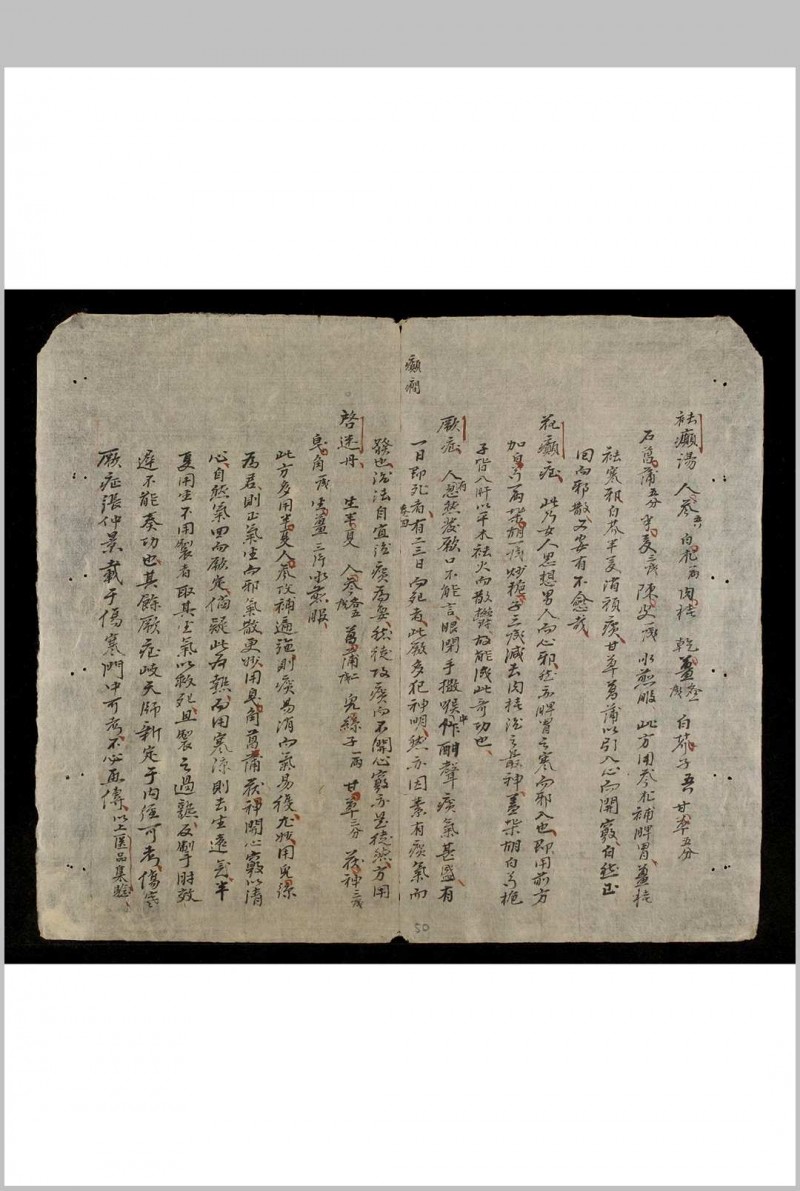 祛癲湯 人参五𠆤 白朮一両 肉桂 乾薑各一𠆤 白芥子五𠆤 甘草五分
石菖蒲五分 半夏三𠆤 陳皮一𠆤 水煎服 此方用参朮補脾胃、薑桂
祛寒邪、白芥半夏消頑痰、甘草菖蒲以引入心而開竅、自然正
回而邪散、又安有不愈哉
花癲症 此乃女人思想男人而心邪、然亦脾胃之寒而邪入也、即用前方
加白芍一両 柴胡二𠆤 炒梔子三𠆤 減去肉桂 治之最神、蓋柴胡白芍梔
子皆入肝以平木祛火而散鬱、故能成此奇功也、
厥症 人忽然發厥口不能言眼閉手撒喉中作酣聲痰氣甚盛、有
一日即死者、有二三日而死者、此厥多犯神明、然亦因素有痰氣而
癲癇
發也、治法自宜治痰為要、然徒攻痰而不開心竅亦是徒然、方用
啓迷丹 生半夏 人参各五𠆤 菖蒲二𠆤 兎絲子一両 甘草三分 茯神三𠆤
皂角一𠆤 生薑三片 水煎服
此方多用半夏人参攻補適強則痰易消而氣易復、尤妙用兎絲
為君則正氣生而邪氣散、更妙用皂角菖蒲茯神開心竅以清
心、自然氣回而厥定、倘疑此為熱而用寒涼則去生遠矣、半
夏用生不用製者取其生氣以救死、且製之過熟反掣于肘效
遲不能奏功也、其餘厥症岐天師新定于内經可考、傷寒
厥症張仲景載于傷寒門中可考、不必再傳、以上醫品集驗
50